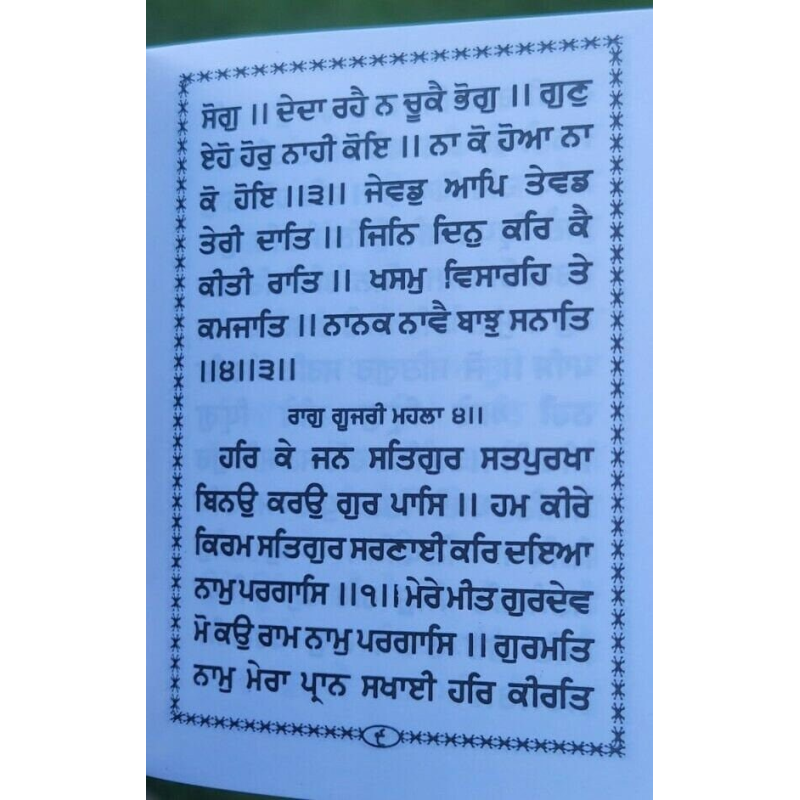 ਸੋਗੁ ॥ ਦੇਦਾ ਰਹੈ ਨ ਚੂਕੈ ਭੋਗੁ ॥ ਗੁਣੁ
ਏਹੋ ਹੋਰੁ ਨਾਹੀ ਕੋਇ ॥ ਨਾ ਕੋ ਹੋਆ ਨਾ
ਕੋ ਹੋਇ ॥੩॥ ਜੇਵਡੁ ਆਪਿ ਤੇਵਡ
ਤੇਰੀ ਦਾਤਿ ॥ ਜਿਨਿ ਦਿਨੁ ਕਰਿ ਕੈ
ਕੀਤੀ ਰਾਤਿ ॥ ਖਸਮੁ ਵਿਸਾਰਹਿ ਤੇ
ਕਮਜਾਤਿ ॥ ਨਾਨਕ ਨਾਵੈ ਬਾਝੁ ਸਨਾਤਿ
॥੪॥੩॥
ਰਾਗੁ ਗੂਜਰੀ ਮਹਲਾ ੪॥
ਹਰਿ ਕੇ ਜਨ ਸਤਿਗੁਰ ਸਤਪੁਰਖਾ
ਬਿਨਉ ਕਰਉ ਗੁਰ ਪਾਸਿ ॥ ਹਮ ਕੀਰੇ
ਕਿਰਮ ਸਤਿਗੁਰ ਸਰਣਾਈ ਕਰਿ ਦਇਆ
ਨਾਮੁ ਪਰਗਾਸਿ ॥੧॥ ਮੇਰੇ ਮੀਤ ਗੁਰਦੇਵ
ਮੋ ਕਉ ਰਾਮ ਨਾਮੁ ਪਰਗਾਸਿ ॥ ਗੁਰਮਤਿ
ਨਾਮੁ ਮੇਰਾ ਪ੍ਰਾਨ ਸਖਾਈ ਹਰਿ ਕੀਰਤਿ
੯